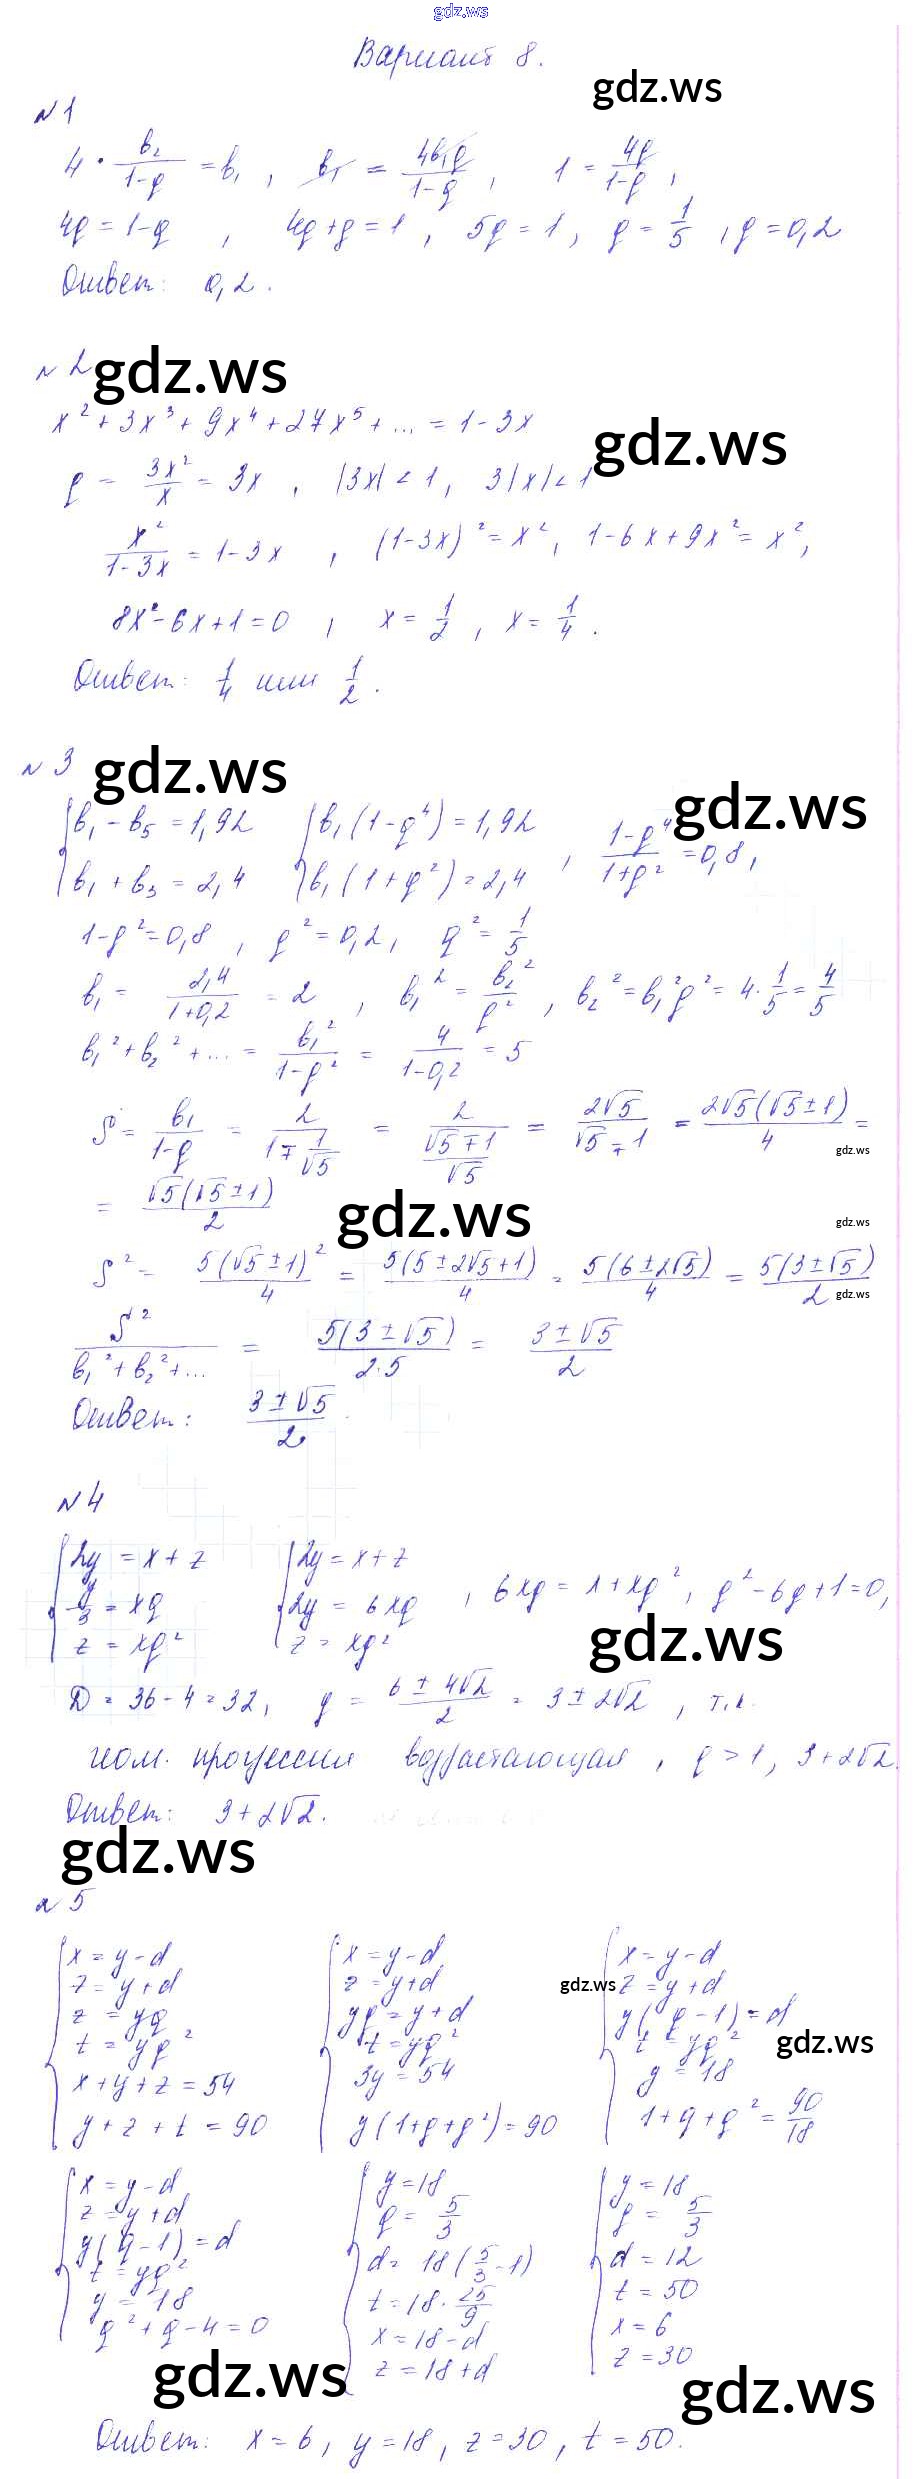 gdz.ws
Вариант 8.
gdz.ws
№ 1
4 · b₂/(1-q) = b₁ , b₁ = 4b₁q/(1-q) , 1 = 4q/(1-q) ,
4q = 1-q , 4q+q = 1 , 5q = 1 , q = 1/5 , q = 0,2
Ответ: 0,2 .
№ 2
gdz.ws
x² + 3x³ + 9x⁴ + 27x⁵ + ... = 1-3x
gdz.ws
q = 3x²/x = 3x , |3x| < 1 , 3|x| < 1
x²/(1-3x) = 1-3x , (1-3x)² = x² , 1-6x+9x² = x² ,
8x²-6x+1=0 , x = 1/2 , x = 1/4 .
Ответ: 1/4 или 1/2 .
№ 3
gdz.ws
gdz.ws
{ b₁ - b₅ = 1,92 { b₁(1-q⁴) = 1,92
{ b₁ + b₃ = 2,4 { b₁(1+q²) = 2,4 , (1-q⁴)/(1+q²) = 0,8 ,
1-q² = 0,8 , q² = 0,2 , q² = 1/5
b₁ = 2,4/(1+0,2) = 2 , b₁² = b₂²/q² , b₂² = b₁²q² = 4·1/5 = 4/5
b₁² + b₂² + ... = b₁²/(1-q²) = 4/(1-0,2) = 5
S = b₁/(1-q) = 2/(1∓1/√5) = 2/((√5∓1)/√5) = 2√5/(√5∓1) = 2√5(√5±1)/4 =
gdz.ws
= √5(√5±1)/2
gdz.ws
gdz.ws
S² = 5(√5±1)²/4 = 5(5±2√5+1)/4 = 5(6±2√5)/4 = 5(3±√5)/2
gdz.ws
S²/(b₁²+b₂²+...) = 5(3±√5)/(2·5) = (3±√5)/2
Ответ: (3±√5)/2 .
№ 4
{ 2y = x+z { 2y = x+z
{ y/3 = xq { 2y = 6xq , 6xq = x+xq² , q²-6q+1=0 ,
{ z = xq² { z = xq²
gdz.ws
D = 36-4 = 32 , q = (6±4√2)/2 = 3±2√2 , т.к.
геом. прогрессия возрастающая , q > 1 , 3+2√2.
Ответ: 3+2√2 .
gdz.ws
№ 5
{ x = y-d { x = y-d { x = y-d
{ z = y+d { z = y+d { z = y+d
gdz.ws
{ z = yq { yq = y+d { y(q-1) = d
{ t = yq² { t = yq² { t = yq²
gdz.ws
{ x+y+z = 54 { 3y = 54 { y = 18
{ y+z+t = 90 { y(1+q+q²) = 90 { 1+q+q² = 90/18
{ x = y-d { y = 18 { y = 18
{ z = y+d { q = 5/3 { q = 5/3
{ y(q-1) = d { d = 18(5/3-1) { d = 12
{ t = yq² { t = 18·25/9 { t = 50
{ y = 18 { x = 18-d { x = 6
{ q²+q-4=0 { z = 18+d { z = 30
gdz.ws
gdz.ws
Ответ: x = 6 , y = 18 , z = 30 , t = 50.